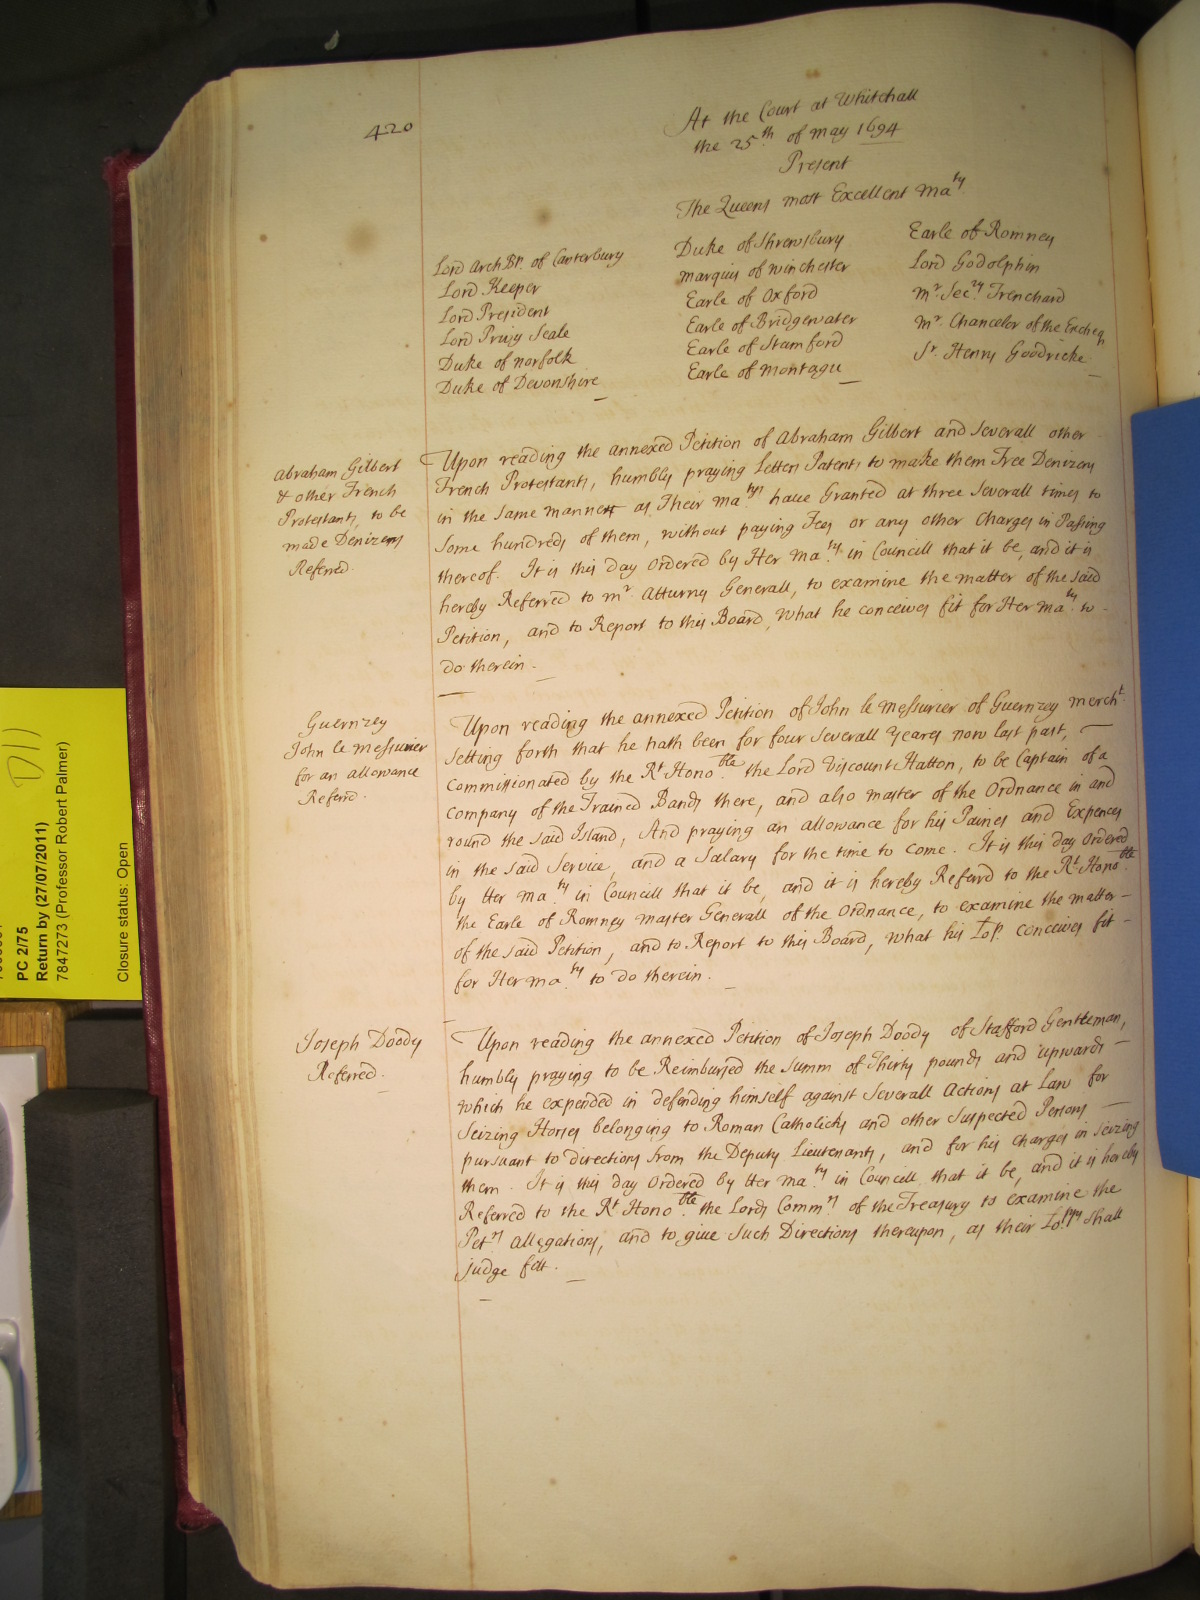 420
At the Court at Whitehall
the 25th. of may 1694
Present
The Queens most Excellent Maty.
Lord Arch Bp. of Canterbury
Lord Keeper
Lord President
Lord Privy Seale
Duke of norfolk
Duke of Devonshire
Duke of Shrewsbury
marquis of winchester
Earle of Oxford
Earle of Bridgewater
Earle of Stamford
Earle of montagu
Earle of Romney
Lord Godolphin
mr. Secry. Trenchard
mr. Chancelor of the Excheqr
Sr. Henry Goodricke
Abraham Gilbert
& other French
Protestants, to be
made Denizens
Referred.
Upon reading the annexed Petition of Abraham Gilbert and Severall other
French Protestants, humbly praying Letters Patents to make them Free Denizens
in the Same manner as Their matys. have Granted at three Severall times to
Some hundreds of them, without paying Fees or any other Charges in Passing
thereof. It is this day Ordered by Her maty. in Councill that it be, and it is
hereby Referred to mr. Atturny Generall, to examine the matter of the said
Petition, and to Report to this Board, What he conceives fit for Her maty. to
do therein.
Guernzey
John le messurier
for an allowance
Referrd.
Upon reading the annexed Petition of John le messurier of Guernzey mercht.
Setting forth that he hath been for four Severall yeares now last past,
commissionated by the Rt. Honoble. the Lord Viscount Hatton, to be Captain of a
company of the Trained Bands there, and also master of the Ordnance in and
round the said Island, And praying an allowance for his Paines and Expences
in the said Service, and a Salary for the time to come. It is this day Ordered
by Her maty. in Councill that it be, and it is hereby Referrd to the Rt. Honoble
the Earle of Romney master Generall of the Ordnance, to examine the matter
of the said Petition, and to Report to this Board, what his Lop. conceives fit
for Her maty. to do therein.
Joseph Doody
Referred.
Upon reading the annexed Petition of Joseph Doody of Stafford Gentleman,
humbly praying to be Reimbursed the Summ of Thirty pounds and upwards
which he expended in defending himself against Severall Actions at Law for
Seizing Horses belonging to Roman Catholicks and other Suspected Persons
pursuant to directions from the Deputy Lieutenants, and for his charges in Seizing
them. It is this day Ordered by Her maty. in Councill that it be, and it is hereby
Referred to the Rt. Honoble. the Lords Commrs. of the Treasury to examine the
Petrs. allegations, and to give Such Directions thereupon, as their Lopps. Shall
judge fitt.
PC 2/75
Return by (27/07/2011)
7847273 (Professor Robert Palmer)
Closure status: Open